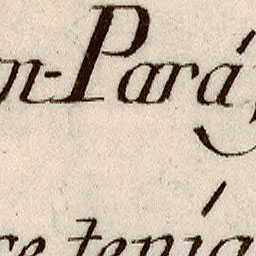 n-Pará
ce tenía